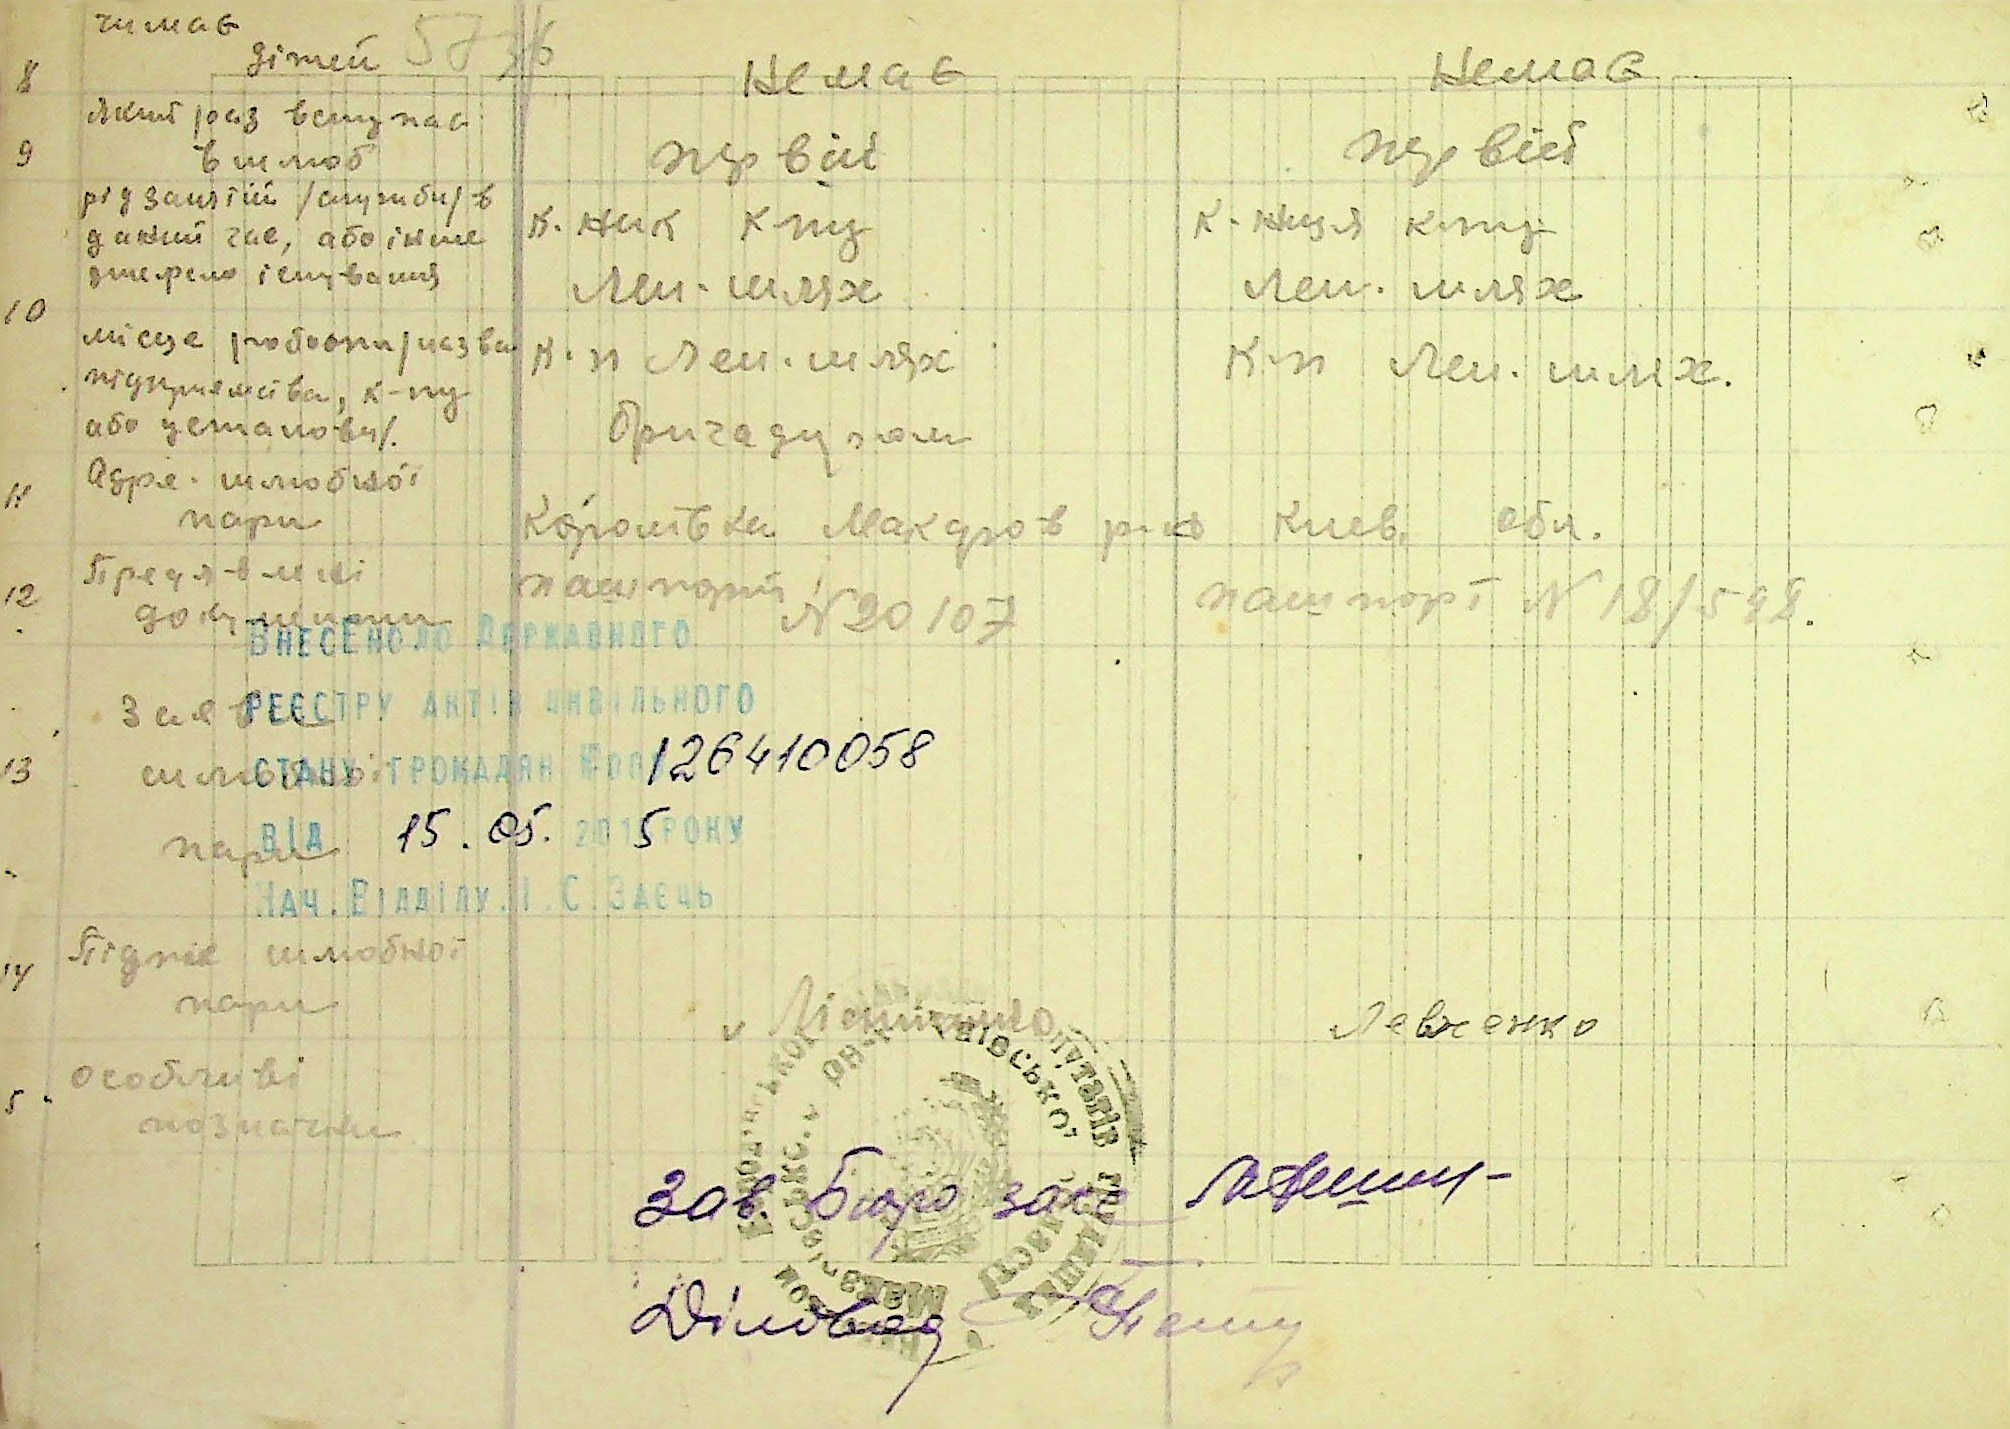 чи має
дітей
8 Немає Немає
який раз вступає
9 в шлюб первій первій
рід заняттій /служби/ в
даний час, або інше к. ник к-пу к-ниця к-пу
джерело існування Лен. шлях Лен. шлях
10
місце роботи /назва к-п Лен. шлях К-п Лен. шлях.
підприємства, к-пу
або установи/.
11 шлюбної
пари Королівка Макаров р-на Киев. обл.
12 паспорт N 20107 паспорт N 18/598.
документи
ВНЕСЕНО ДО ДЕРЖАВНОГО
Заява РЕЄСТРУ АКТІВ ЦИВІЛЬНОГО
13 шлюбної СТАНУ ГРОМАДЯН 126410058
пари ВІД 15.05. 2015 РОКУ
НАЧ. ВІДДІЛУ. І.С. ЗАЄЦЬ
14 Підпис шлюбної
пари Левченко
особливі
позначки
Зав. Бюро загс
Діловод